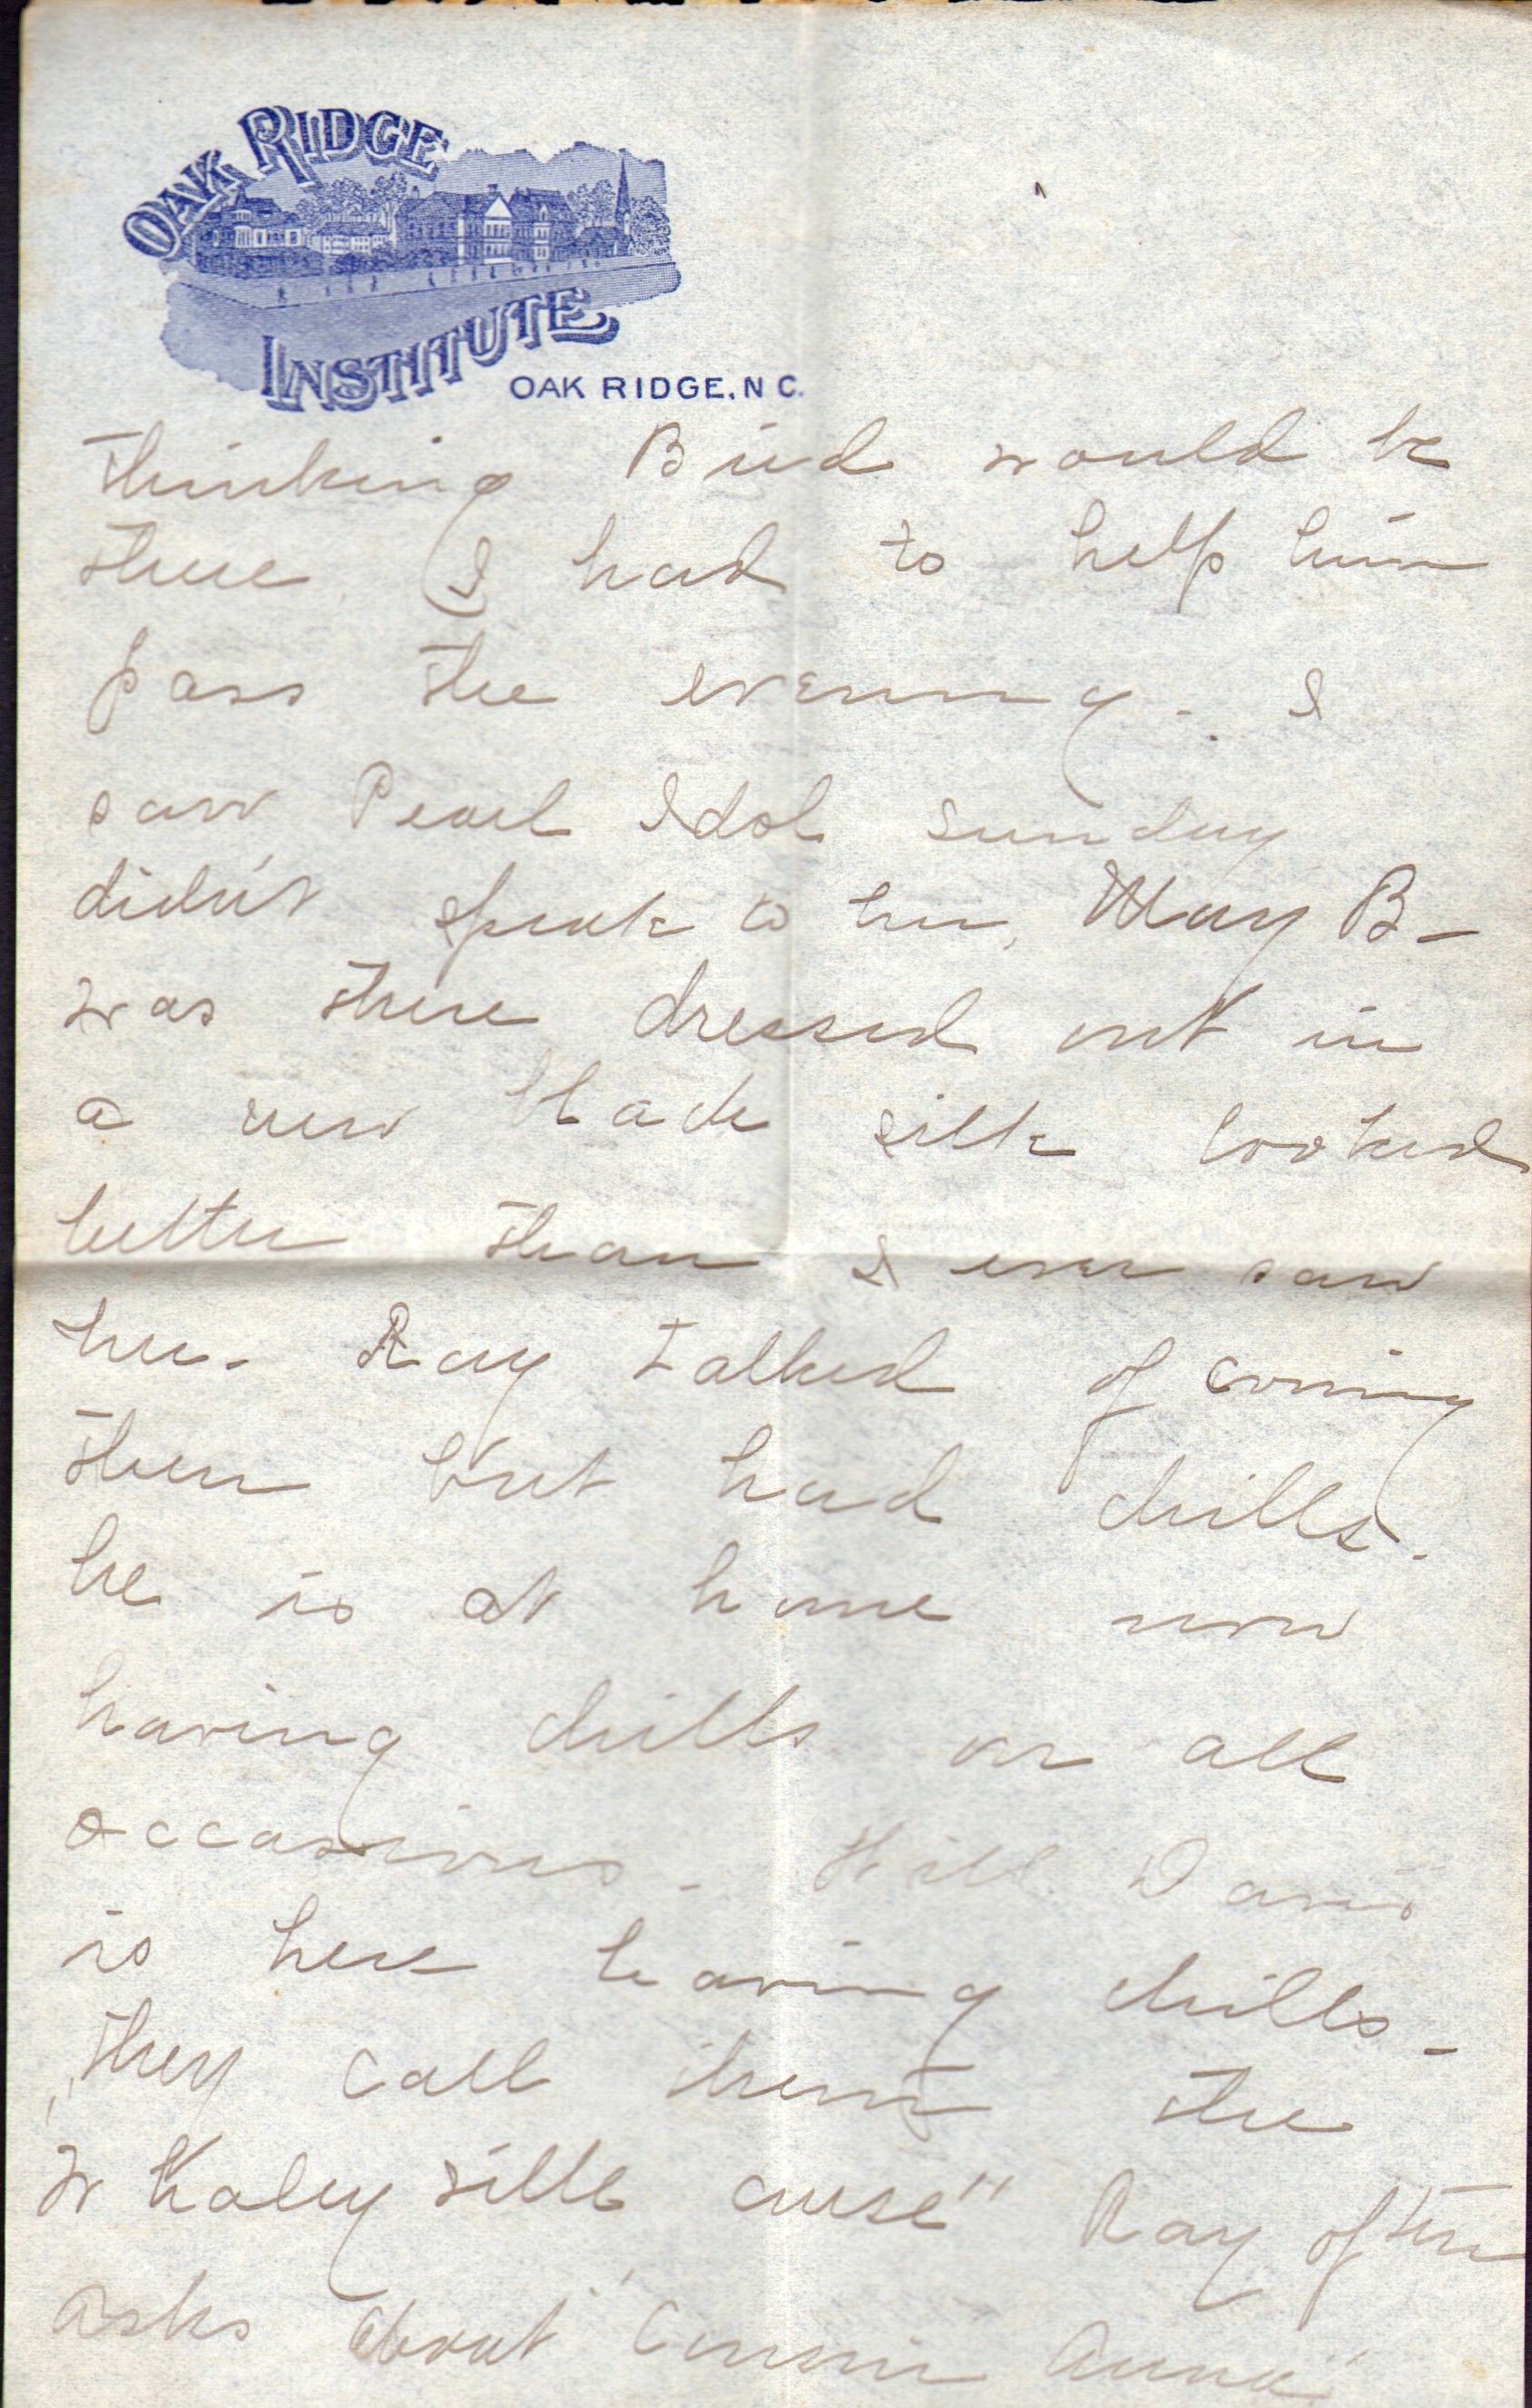 OAK RIDGE
INSTITUTE
OAK RIDGE, N C.
thinking Bud would be
there I had to help him
pass the evening. I
saw Pearl Idol Sunday
didn't speak to her. May B-
was there dressed out in
a new black silk looked
better than I ever saw
her. Ray talked of coming
then but had chills.
he is at home now
having chills on all
occasions. Will Davis
is here having chills.
"they call them the
curse" Ray often
asks about "Cousin Anna"